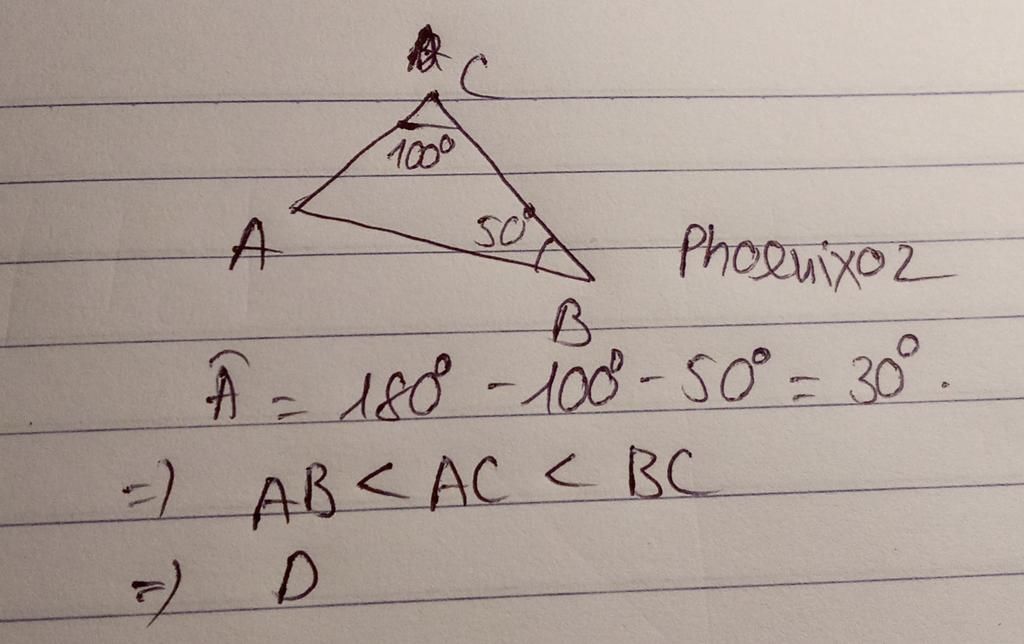 C
100°
A
50°
Phoenix02
B
Â = 180° - 100° - 50° = 30°.
=) AB < AC < BC
=) D